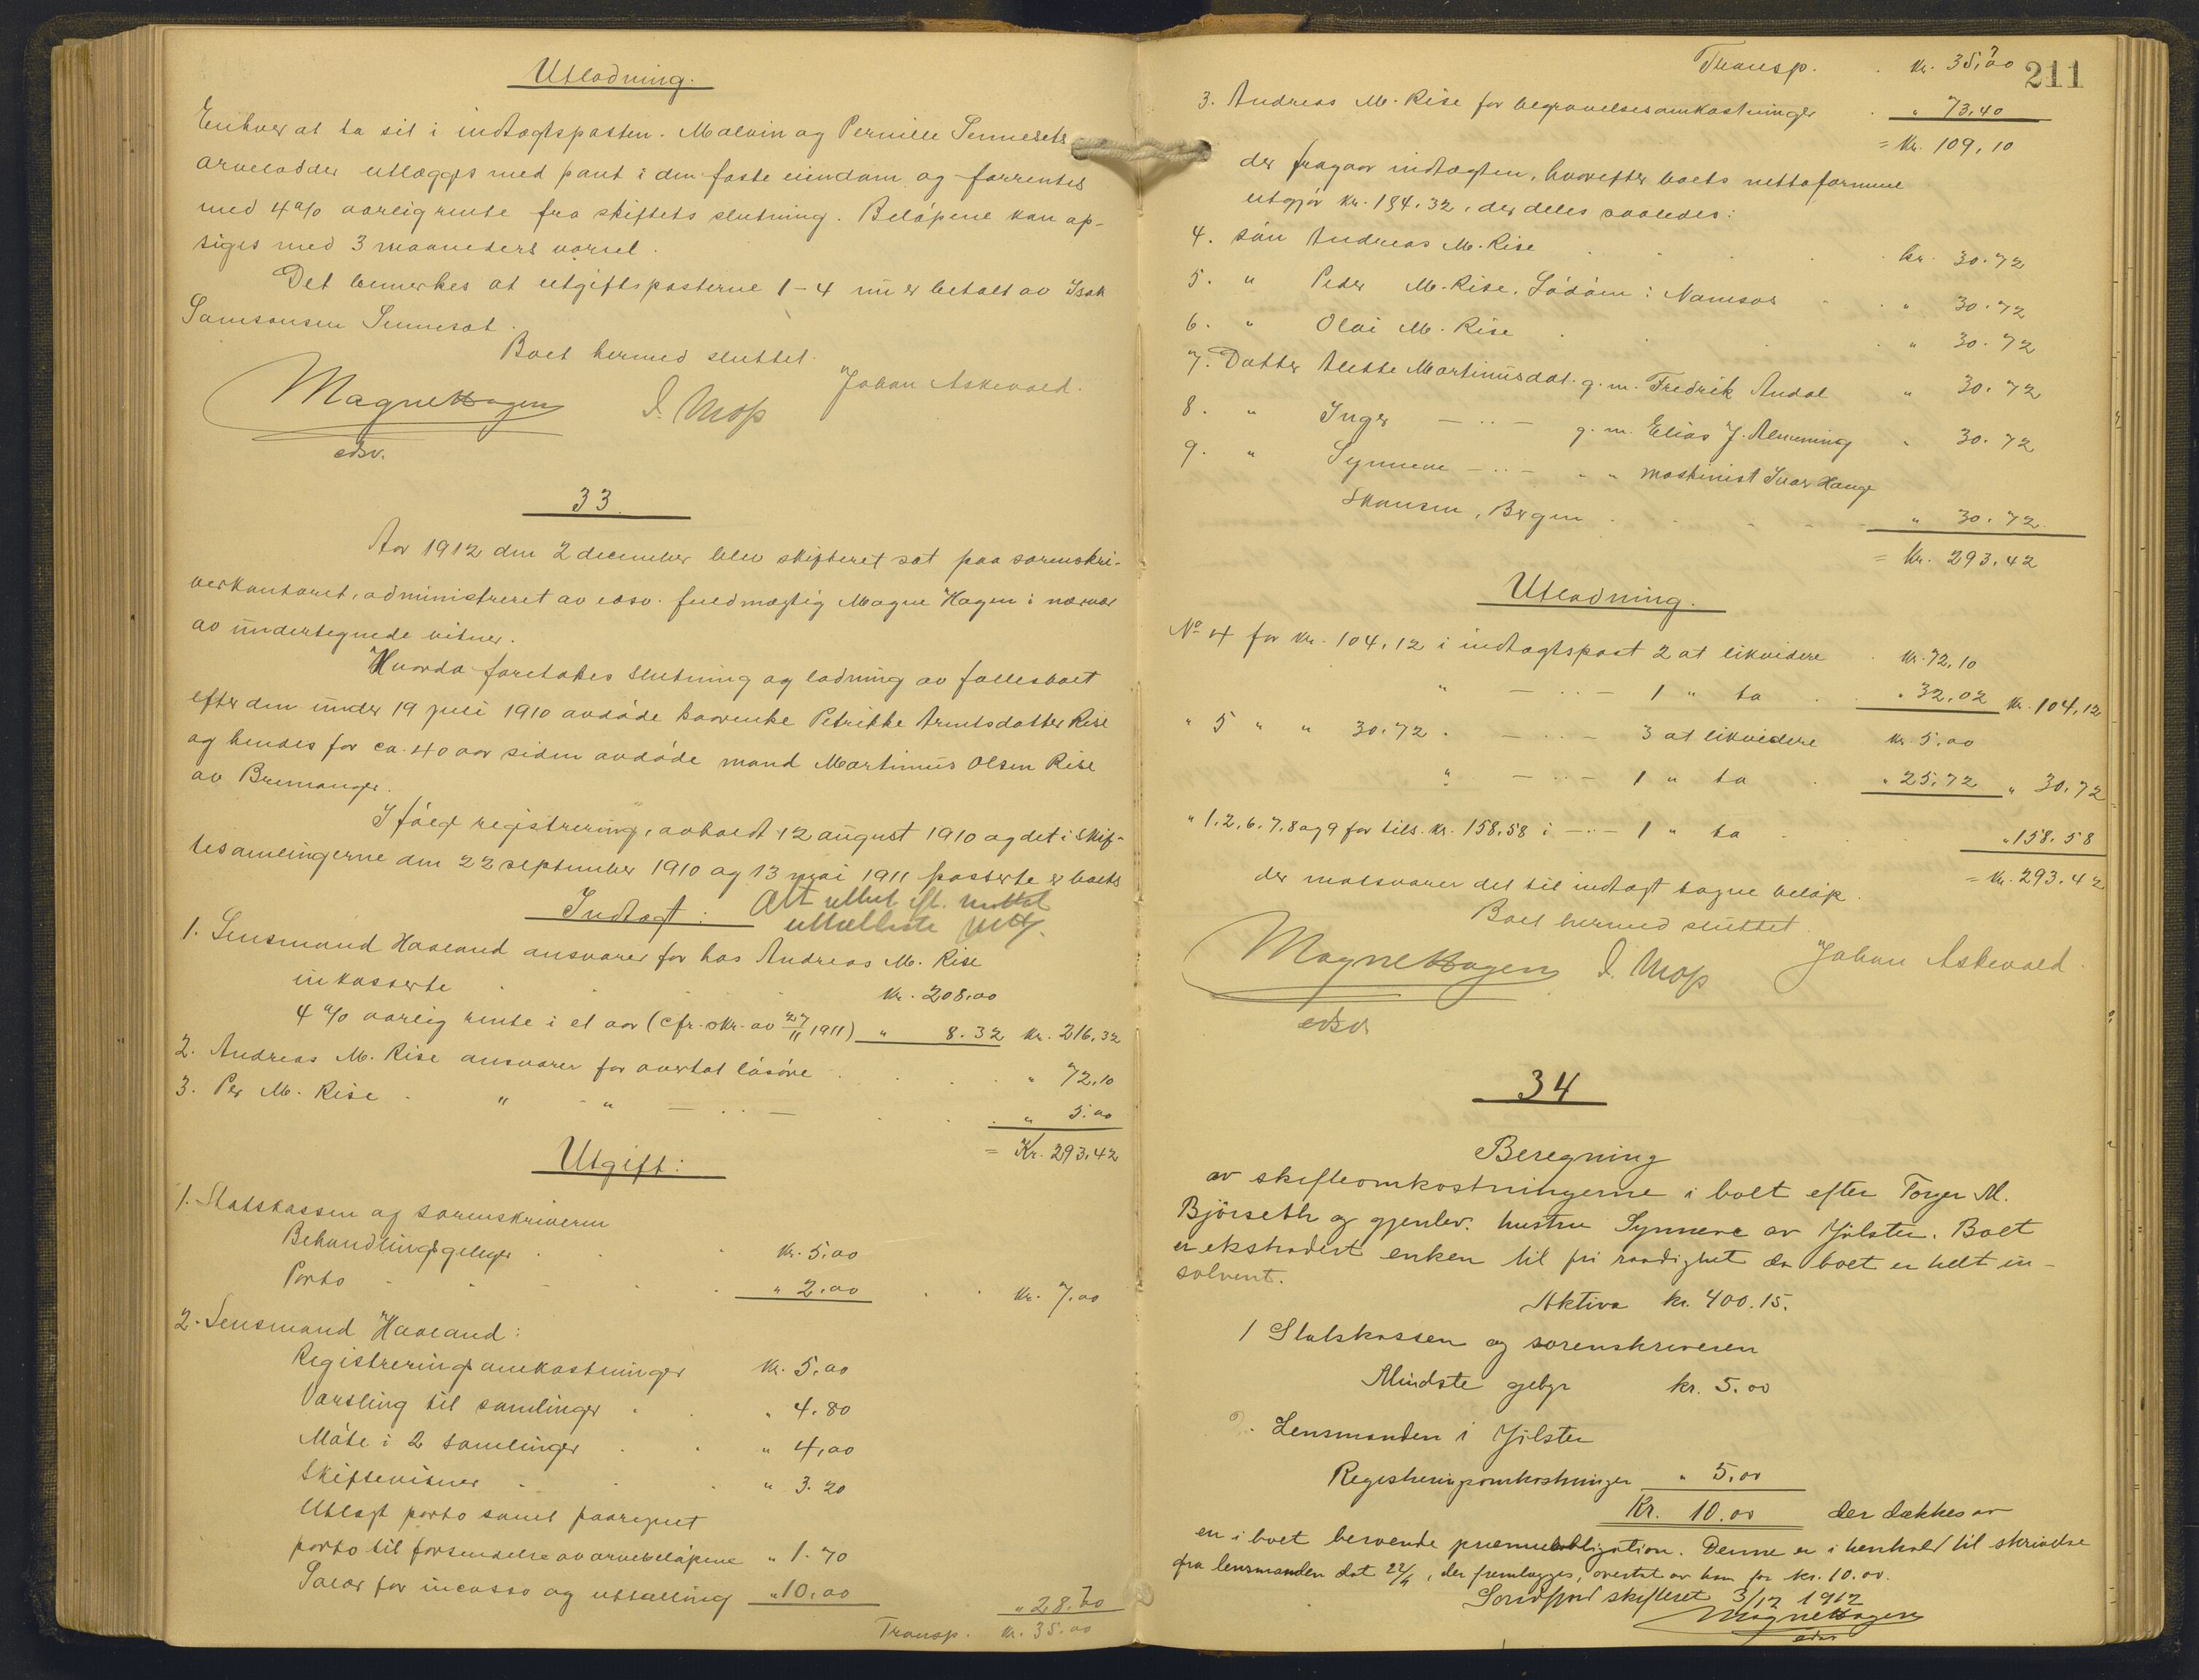 Utlodning.
Enhver at ta sit i indtægtsposten. Malvin og Pernille Sennesets
arvelodder utlægges med pant i den faste eiendom og forrentes
med 4% aarlig rente fra skiftets slutning. Beløpene kan op-
siges med 3 maaneders varsel.
Det bemerkes at utgiftsposterne 1-4 nu er betalt av Isak
Samsonsen Senneset.
Boet hermed sluttet.
Magne Hagen
I. Mop
Johan Askevold.
edsv.
33.
Aar 1912 den 2 december blev skifteret sat paa sorenskri-
verkontoret, administreret av edsv. fuldmægtig Magne Hagen i nærvær
av undertegnede vitner.
Hvorda foretokes slutning og lodning av fællesboet
efter den under 19 juli 1910 avdøde kaarenke Petrikke Arentsdatter Rise
og hendes for ca. 40 aar siden avdøde mand Martinus Olsen Rise
av Bremanger.
I følge registrering, avholdt 12 august 1910 og det i skif-
tesamlingerne den 22 september 1910 og 13 mai 1911 passerte er boets
Indtægt:
Alt utbet. ifl.
1. Lensmand Haaland ansvarer for hos Andreas M. Rise
inkasserte kr. 208,00
4% aarlig rente i et aar (cfr. skr. av 27/11 1911) " 8.32 kr. 216,32
2. Andreas M. Rise ansvarer for overtat løsøre " 72,10
3. Per M. Rise " " — " — " 5.00
= Kr. 293,42
Utgift:
1. Statskassen og sorenskriveren
Behandlingsgebyr kr. 5,00
Porto " 2,00 kr. 7,00
2. Lensmand Haaland:
Registreringsomkostninger kr. 5,00
Varsling til samlinger " 4.80
Møte i 2 samlinger " 4,00
Skiftevitner " 3.20
Utlagt porto samt paaregnet
porto til forsendelse av arvebeløpene " 1.70
Salær for incasso og uttælling " 10,00 " 28.70
Transp. kr. 35.00
Transp. kr. 35,70
211
3. Andreas M. Rise for begravelsesomkostninger " 73,40
= kr. 109,10
der fragaar indtægten, hvorefter boets nettoformue
utgjør kr. 184.32, der deles saaledes:
4. søn Andreas M. Rise kr. 30.72
5. " Peder M. Rise, Sødøen i Namsos " 30.72
6. " Olai M. Rise " 30.72
7. Datter Alette Martinusdat. g. m. Fredrik Andal " 30.72
8. " Inger — " — g. m. Elias J. Alm̃ening " 30.72
9. " Synneve — " — " " maskinist Ivar Hauge
Skansen, Bergen " 30.72
= Kr. 293.42
Utlodning.
No 4 for kr. 104,12 i indtægtspost 2 at likvidere kr. 72,10
" — " — 1 " ta " 32,02 kr. 104,12
" 5 " " 30.72 " — " — 3 at likvidere kr. 5,00
" — " — 1 " ta " 25,72 " 30,72
" 1. 2. 6. 7. 8 og 9 for tils. kr. 158,58 i — " — 1 " ta " 158.58
= kr. 293.42
der motsvarer det til indtægt tagne beløp.
Boet hermed sluttet.
Magne Hagen
I. Mop
Johan Askevold.
edsv.
34
Beregning
av skifteomkostningerne i boet efter Torger M.
Bjørseth og gjenlev. hustru Synneve av Jølster. Boet
er ekstradert enken til fri raadighet da boet er helt in-
solvent.
Aktiva kr. 400.15.
1 Statskassen og sorenskriveren
Mindste gebyr kr. 5.00
2. Lensmanden i Jølster
Registreringsomkostninger " 5,00
Kr. 10.00 der dækkes av
en i boet beroende præmieobligation. Denne er i henhold til skrivelse
fra lensmanden dat 22/4, der fremlægges, overtat av ham for kr. 10.00.
Søndfjord skifteret 3/12 1912
Magne Hagen
edsv